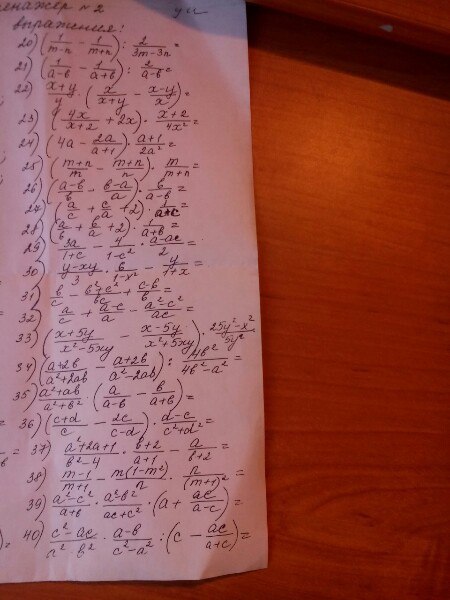 енажер №2
выражения:
20) (1/(m-n) - 1/(m+n)) : 2/(3m-3n) =
21) (1/(a-b) - 1/(a+b)) : 2/(a-b) =
22) (x+y)/y · (x/(x+y) - (x-y)/x) =
23) (4x/(x+2) + 2x) · (x+2)/4x² =
24) (4a - 2a/(a+1)) · (a+1)/2a² =
25) ((m+n)/m - (m+n)/n) · m/(m+n) =
26) ((a-b)/b - (b-a)/a) · b/(a-b) =
27) (a/c + c/a + 2) · 1/(a+c) =
28) (a/b + b/a + 2) · 1/(a+b) =
29) 3a/(1+c) - 4/(1-c²) · (a-ac)/2 =
30) (y-xy)/3 · 6/(1-x²) - y/(1+x) =
31) b/c - (b²+c²)/bc + (c-b)/b =
32) a/c + (a-c)/a - (a²-c²)/ac =
33) ((x+5y)/(x²-5xy) - (x-5y)/(x²+5xy)) · (25y²-x²)/5y² =
34) ((a+2b)/(a²+2ab) - (a+2b)/(a²-2ab)) : 4b²/(4b²-a²) =
35) (a²+ab)/(a²+b²) · (a/(a-b) - b/(a+b)) =
36) ((c+d)/c - 2c/(c-d)) · (d-c)/(c²+d²) =
37) (a²+2a+1)/(b²-4) · (b+2)/(a+1) - a/(b+2) =
38) (m-1)/(m+1) - m(1-m²)/n · n/(m+1)² =
39) (a²-c²)/(a+b) · (a²b²)/(ac+c²) · (a + ac/(a-c)) =
40) (c²-ac)/(a²-b²) · (a-b)/(c²-a²) : (c - ac/(a+c)) =